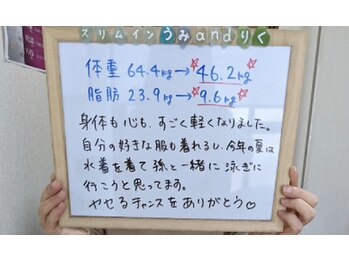 スリムイン うみandりく
体重 64.4kg→☆46.2kg☆
脂肪 23.9kg→☆9.6kg☆
身体も心も、すごく軽くなりました。
自分の好きな服も着れるし、今年の夏は
水着を着て孫と一緒に泳ぎに
行こうと思ってます。
ヤセるチャンスをありがとう♡